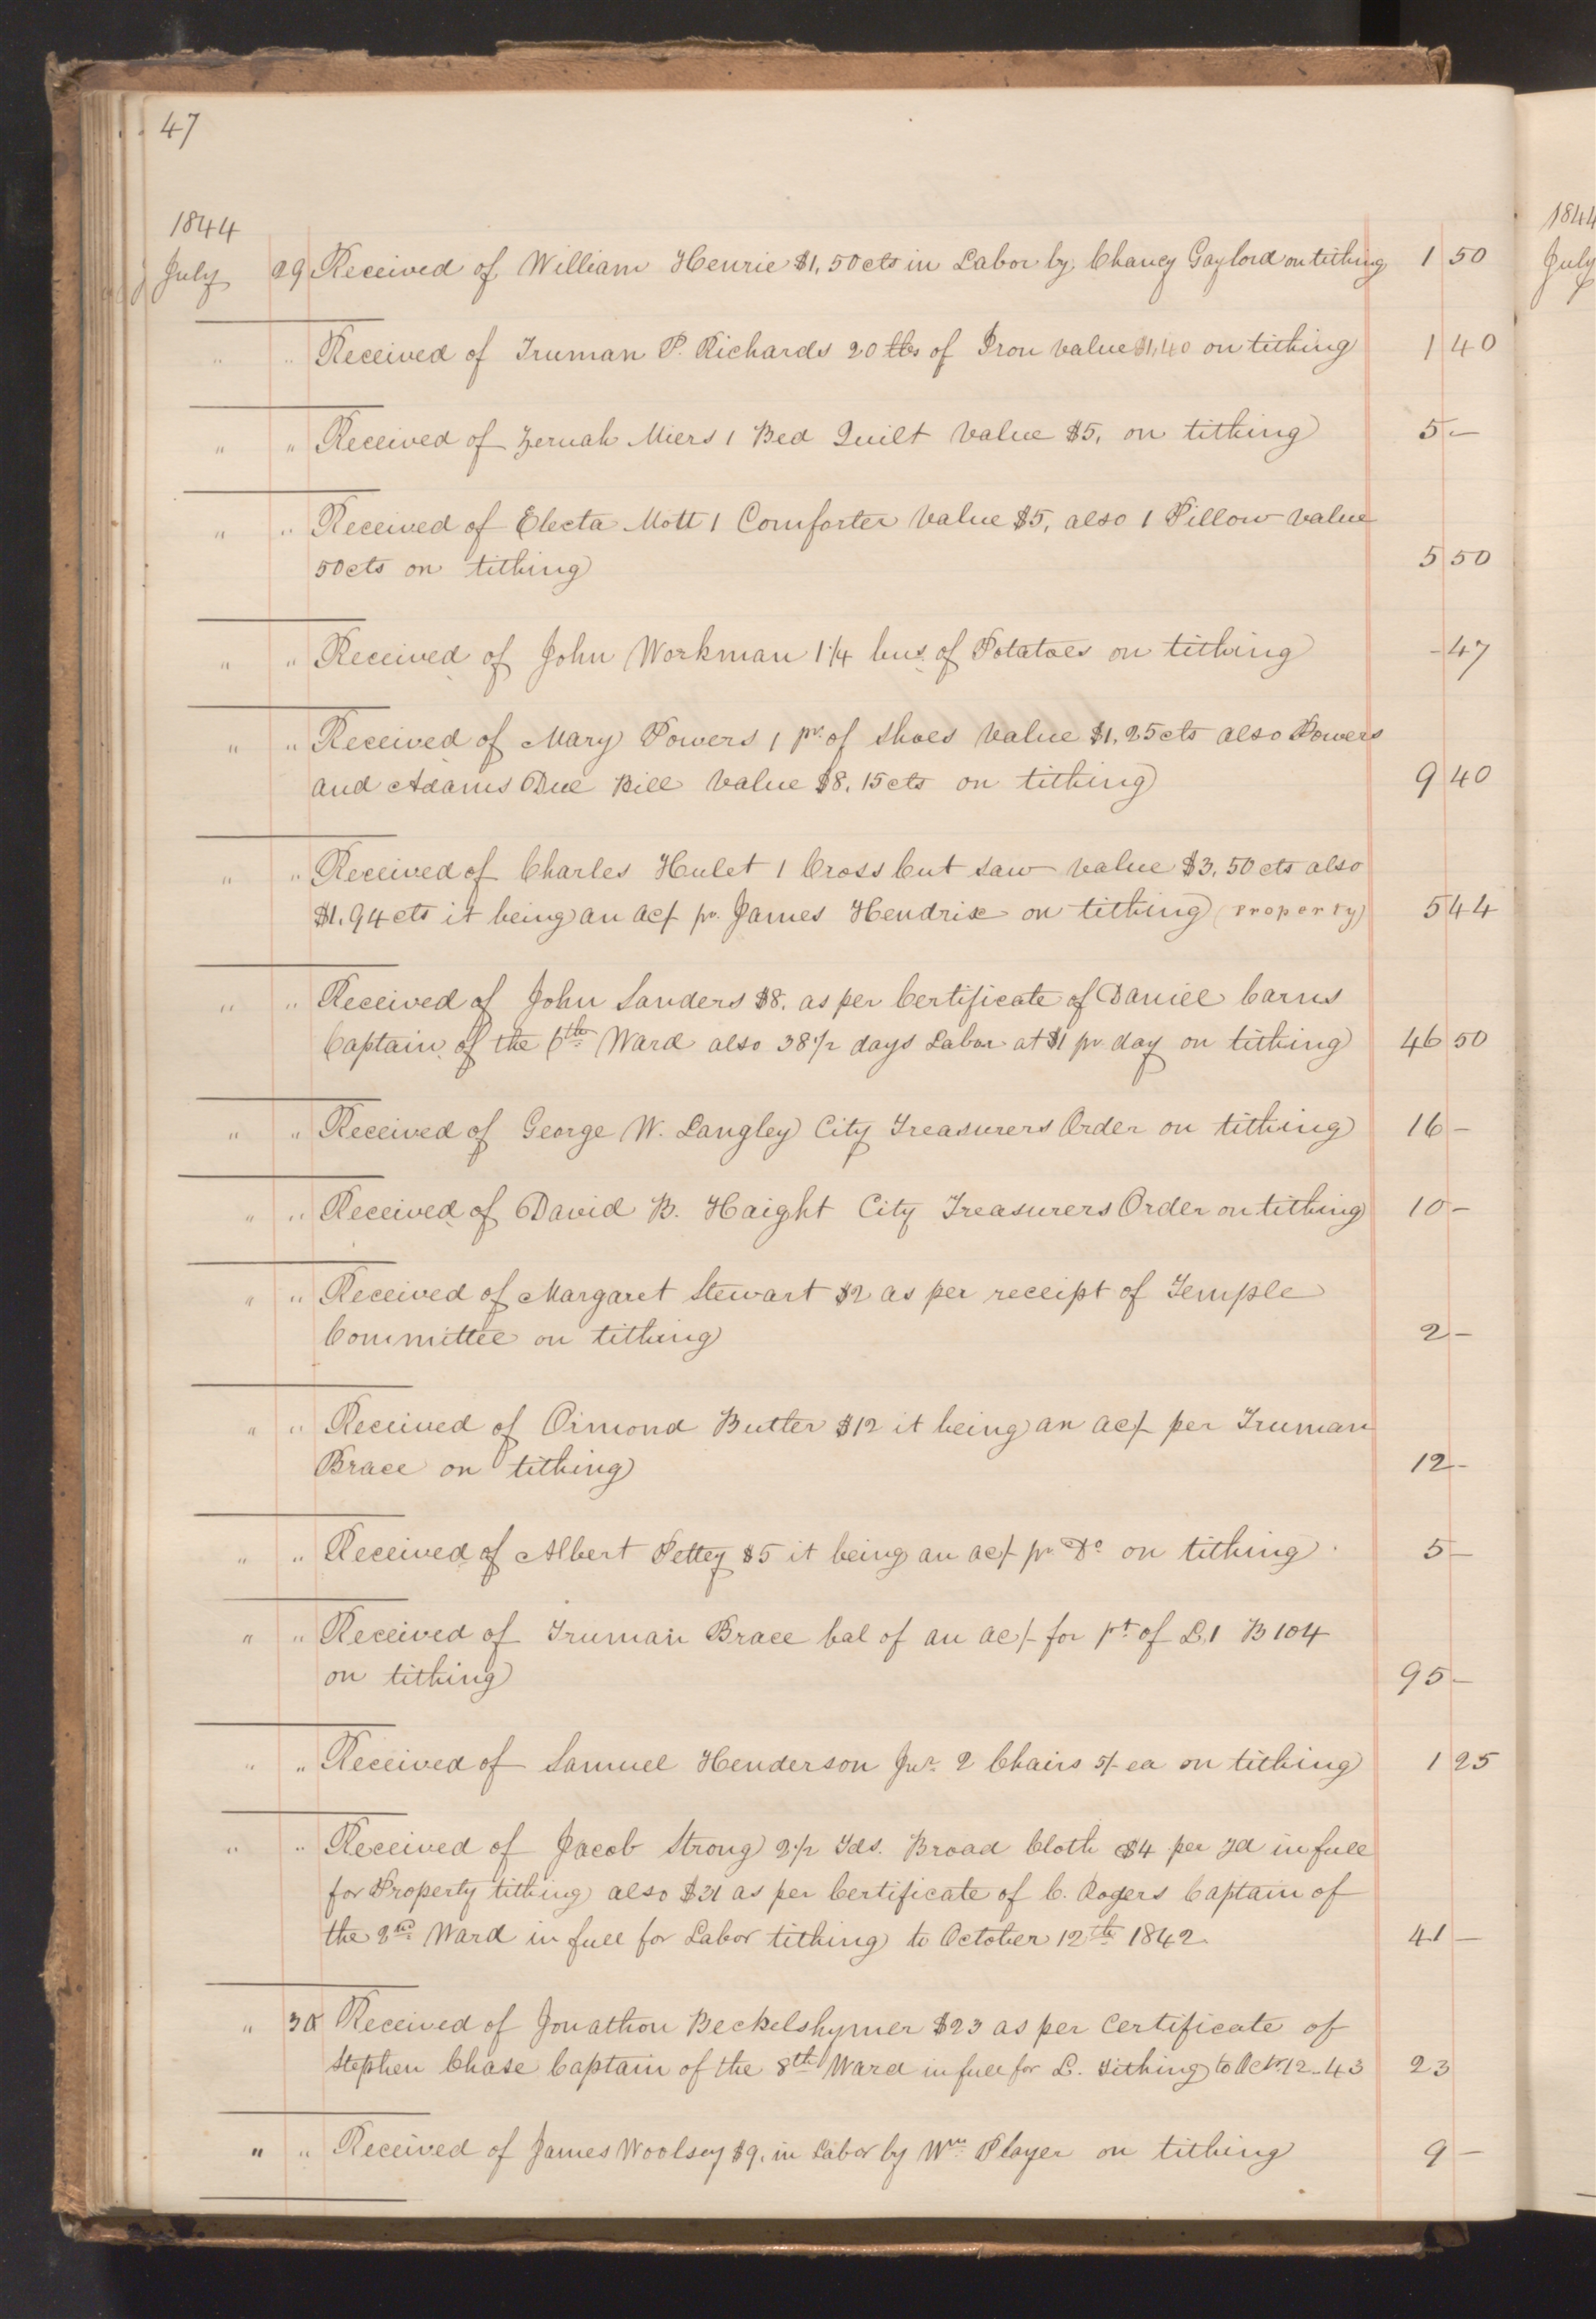 47
1844
July 29 Received of William Henrie $1,50cts in Labor by Chancy Gaylord on tithing 1 50
" " Received of Truman P. Richards 20 lbs of Iron value $1,40 on tithing 1 40
" " Received of Zeruah Miers 1 Bed Quilt value $5, on tithing 5 —
" " Received of Electa Mott 1 Comforter value $5, also 1 Pillow value
50cts on tithing 5 50
" " Received of John Workman 1 1/4 bus. of Potatoes on tithing - 47
" " Received of Mary Powers 1 pr. of Shoes value $1,25cts also Powers
and Adams Due Bill value $8,15cts on tithing 9 40
" " Received of Charles Hulet 1 Cross Cut Saw value $3,50cts also
$1,94cts it being an ac/ pr. James Hendrix on tithing (Property) 5 44
" " Received of John Sanders $8, as per Certificate of Daniel Carns
Captain of the 6th Ward also 38 1/2 days Labor at $1 pr day on tithing 46 50
" " Received of George W. Langley City Treasurers Order on tithing 16 —
" " Received of David B. Haight City Treasurers Order on tithing 10 —
" " Received of Margaret Stewart $2 as per receipt of Temple
Committee on tithing 2 —
" " Received of Ormond Butler $12 it being an ac/ per Truman
Brace on tithing 12 —
" " Received of Albert Pettey $5 it being an ac/ pr Do on tithing. 5 —
" " Received of Truman Brace bal of an ac/ for pt of L,1 B 104
on tithing 95 —
" " Received of Samuel Henderson Junr. 2 Chairs 5/- ea on tithing 1 25
" " Received of Jacob Strong 2 1/2 Yds. Broad Cloth $4 per yd in full
for Property tithing also $31 as per Certificate of C. Rogers Captain of
the 2nd Ward in full for Labor tithing to October 12th 1842. 41 —
" 30 Received of Jonathon Beckelshymer $23 as per Certificate of
Stephen Chase Captain of the 8th Ward in full for L. tithing to Octr 12 - 43 23
" " Received of James Woolsey $9, in Labor by Wm Player on tithing 9 —
1844
July